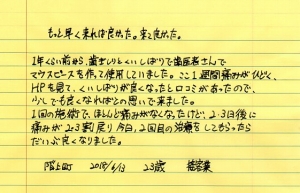 もっと早く来れば良かった。来て良かった。
1年くらい前から、歯ぎしりとくいしばりで歯医者さんで
マウスピースを作って使用していました。ここ1週間痛みがひどく、
HPを見て、くいしばりが良くなったと口コミがあったので、
少しでも良くなればとの思いで来ました。
1回の施術で、ほとんど痛みがなくなったけど、2・3日後に
痛みが2・3割戻り今日、2回目の治療をしてもらったら
だいぶ良くなりました。
階上町 2018/4/13 23歳